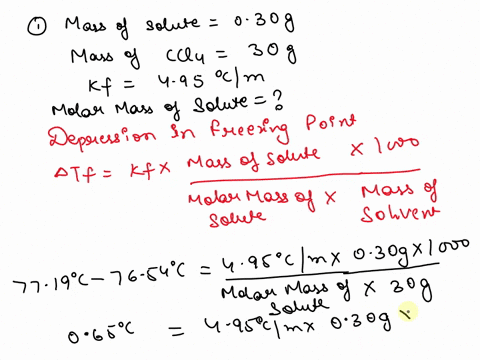 ① Mass of solute = 0.30g
Mass of CCl4 = 30g
Kf = 4.95 °C/m
Molar Mass of Solute = ?
Depression In Freezing Point
ΔTf = Kf × Mass of Solute × 1000
Molar Mass of Solute × Mass of Solvent
77.19°C - 76.54°C = 4.95°C/m × 0.30g × 1000
Molar Mass of Solute × 30g
0.65°C = 4.95°C/m × 0.30g ×